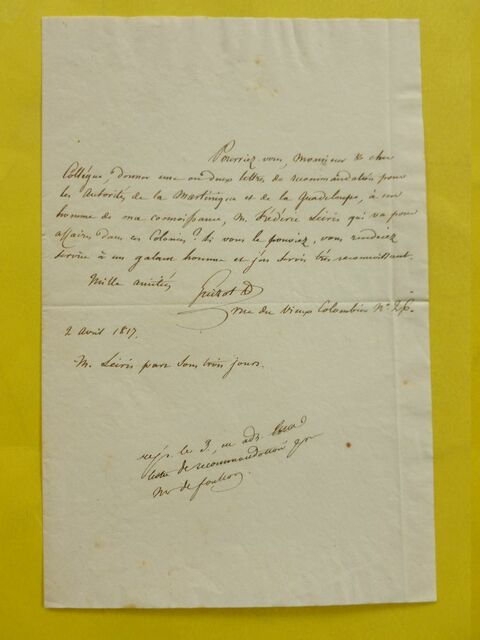 Pourriez vous, Monsieur & cher
Collègue, donner une ou deux lettres de recommandation pour
les Autorités de la Martinique et de la Guadeloupe, à un
homme de ma connoissance, M. Frédéric Leiris qui va pour
affaires dans ces Colonies? Si vous le pouviez, vous rendriez
service à un galant homme et j'en serois très reconnoissant.
Mille amitiés
Guizot
rue du Vieux Colombier N° 26.
2 avril 1817.
M. Leiris part sous trois jours.
le 3, en
lettre de recommandation pr
Mr de